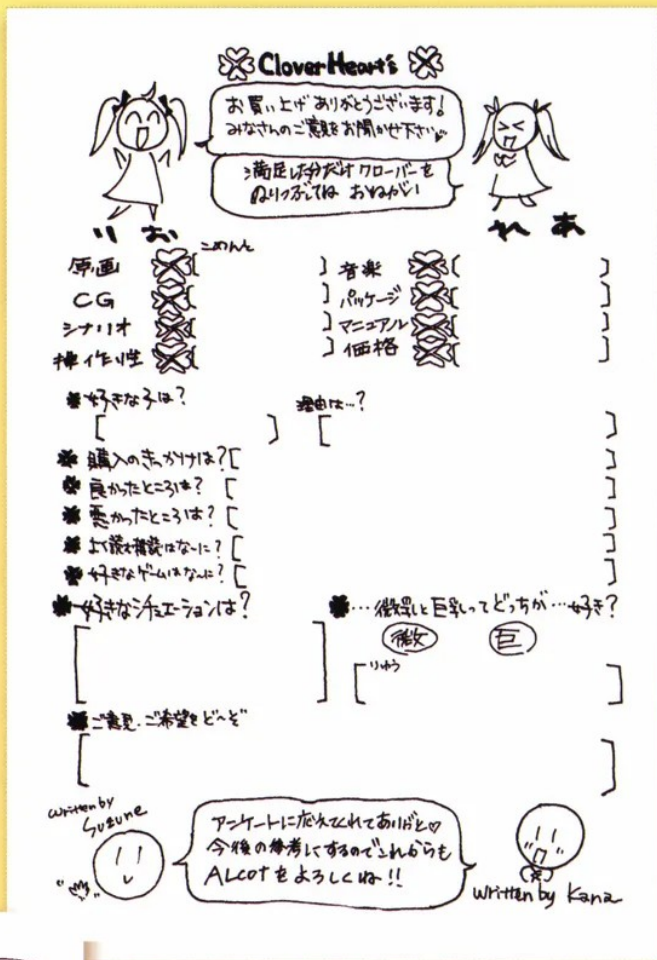 Clover Heart's
お買い上げありがとうございます!
みなさんのご意見をお聞かせ下さい♥
満足した分だけクローバーを
ぬりつぶしてね おねがい
りお
れあ
こめんと
原画 [ ] 音楽 [ ]
CG [ ] パッケージ [ ]
シナリオ [ ] マニュアル [ ]
操作性 [ ] 価格 [ ]
好きな子は? 理由は…?
[ ] [ ]
購入のきっかけは? [ ]
良かったところは? [ ]
悪かったところは? [ ]
よく読む雑誌はな〜に? [ ]
好きなゲームはな〜に? [ ]
好きなシチュエーションは? …微乳と巨乳ってどっちが…好き?
微 巨
りゆう
ご意見・ご希望をど〜ぞ
written by
Suzune
アンケートに応えてくれてありがと♡
今後の参考にするのでこれからも
ALcotをよろしくね!!
written by Kana